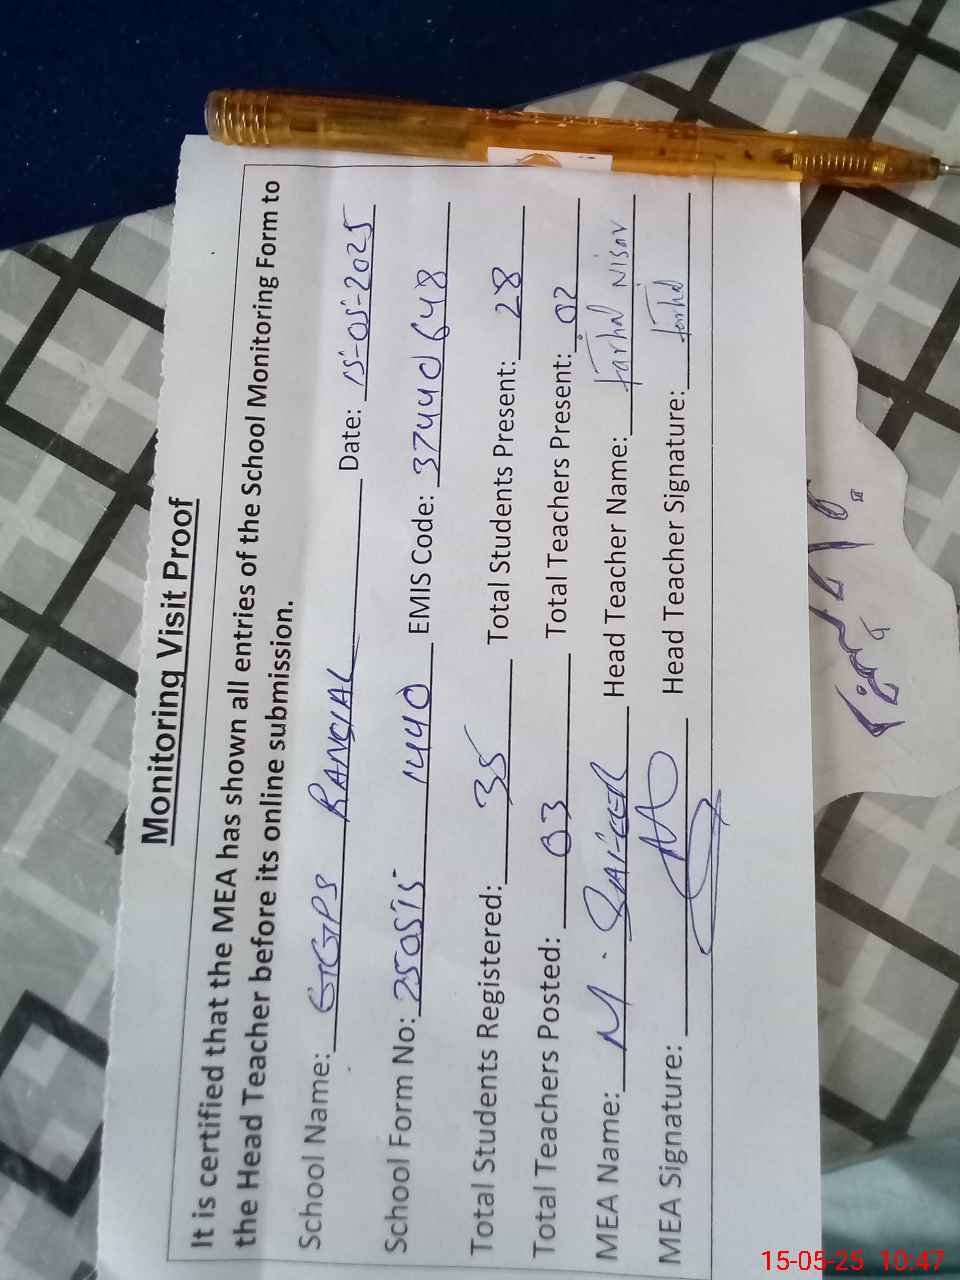 Monitoring Visit Proof
It is certified that the MEA has shown all entries of the School Monitoring Form to
the Head Teacher before its online submission.
School Name: GGPS RANGIAL Date: 15-05-2025
School Form No: 250515 1440 EMIS Code: 37440648
Total Students Registered: 35 Total Students Present: 28
Total Teachers Posted: 03 Total Teachers Present: 02
MEA Name: M. Head Teacher Name: Farhd Nisar
MEA Signature: Head Teacher Signature: Farhd
15-05-25 10:47